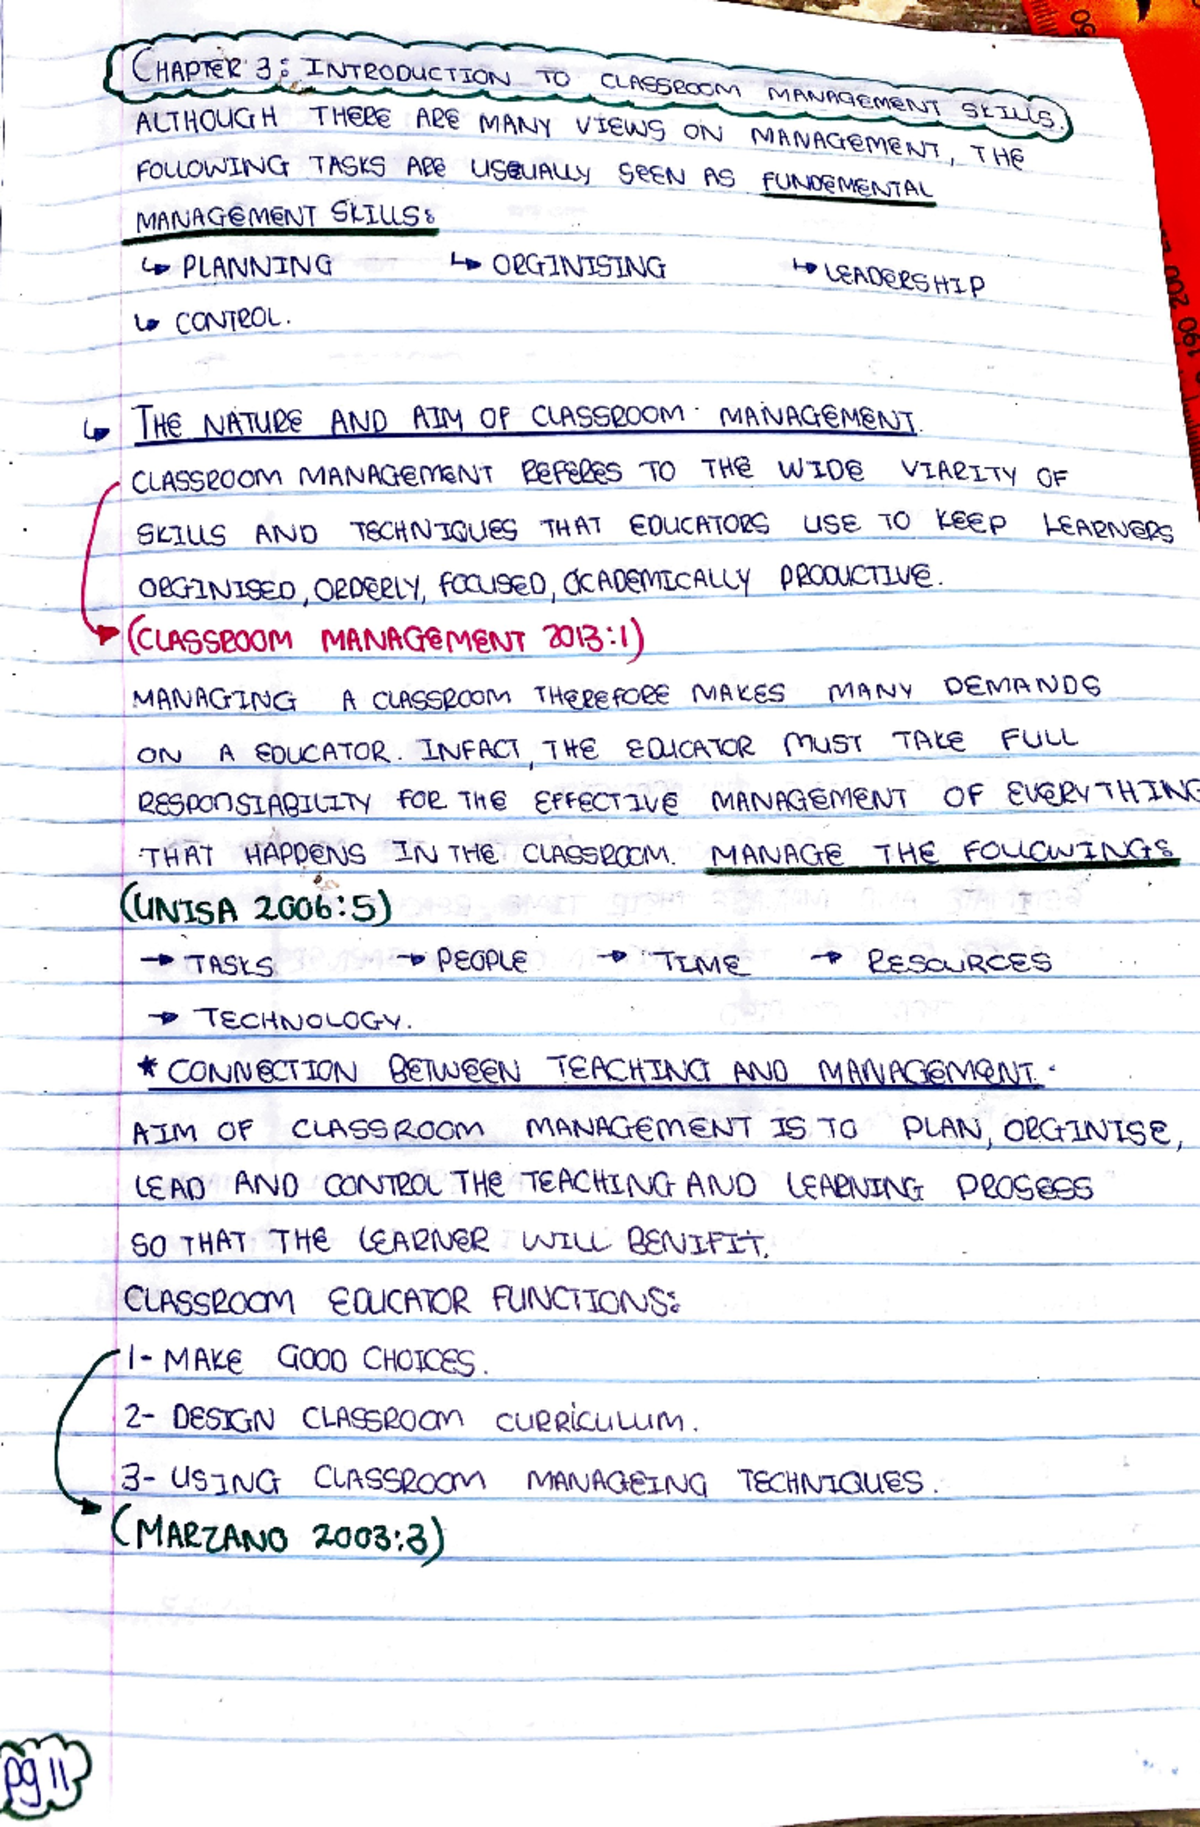 CHAPTER 3: INTRODUCTION TO CLASSROOM MANAGEMENT SKILLS.
ALTHOUGH THERE ARE MANY VIEWS ON MANAGEMENT, THE
FOLLOWING TASKS ARE USEUALLY SEEN AS FUNDEMENTAL
MANAGEMENT SKILLS:
↳ PLANNING ↳ ORGINISING ↳ LEADERSHIP
↳ CONTROL.
↳ THE NATURE AND AIM OF CLASSROOM MANAGEMENT.
CLASSROOM MANAGEMENT REFERES TO THE WIDE VIARITY OF
SKILLS AND TECHNIQUES THAT EDUCATORS USE TO KEEP LEARNERS
ORGINISED, ORDERLY, FOCUSED, ACADEMICALLY PRODUCTIVE.
(CLASSROOM MANAGEMENT 2013:1)
MANAGING A CLASSROOM THEREFORE MAKES MANY DEMANDS
ON A EDUCATOR. INFACT, THE EDUCATOR MUST TAKE FULL
RESPONSIABILITY FOR THE EFFECTIVE MANAGEMENT OF EVERYTHING
THAT HAPPENS IN THE CLASSROOM. MANAGE THE FOLLOWING:
(UNISA 2006:5)
→ TASKS → PEOPLE → TIME → RESOURCES
→ TECHNOLOGY.
* CONNECTION BETWEEN TEACHING AND MANAGEMENT.
AIM OF CLASSROOM MANAGEMENT IS TO PLAN, ORGINISE,
LEAD AND CONTROL THE TEACHING AND LEARNING PROSESS
SO THAT THE LEARNER WILL BENIFIT.
CLASSROOM EDUCATOR FUNCTIONS:
1- MAKE GOOD CHOICES.
2- DESIGN CLASSROOM CURRICULUM.
3- USING CLASSROOM MANAGEING TECHNIQUES.
(MARZANO 2003:3)
pg 11